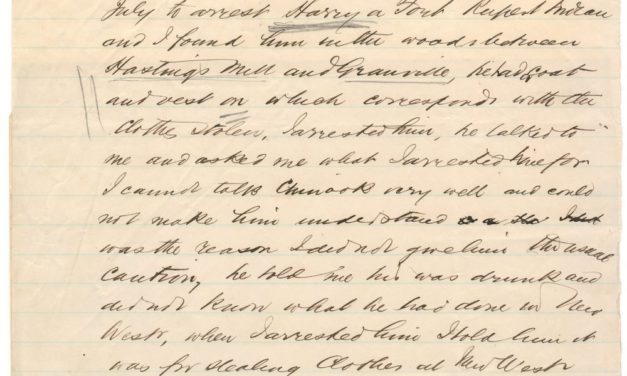 July to arrest Harry a Fort Rupert Indian
and I found him in the woods between
Hastings Mill and Granville, he had coat
and vest on which corresponds with the
Clothes Stolen, I arrested him, he talked to
me and asked me what I arrested him for
I cannot talk Chinook very well and could
not make him understand
was the reason I did not give him the usual
Caution, he told me he was drunk and
did not know what he had done in New
Westr, when I arrested him I told him it
was for stealing Clothes at New West